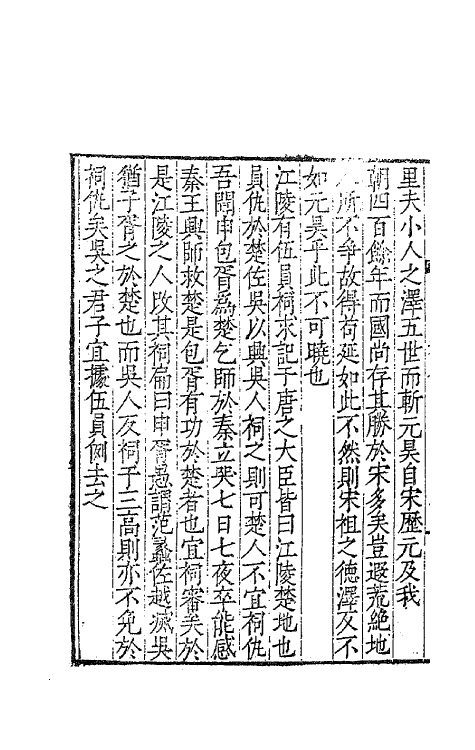 里夫小人之澤五世而斬元昊自宋歷元及我
朝四百餘年而國尚存其勝於宋多矣豈遐荒絶地
人所不爭故得苟延如此不然則宋祖之德澤反不
如元昊乎此不可曉也
江陵有伍員祠求記于唐之大臣皆曰江陵楚地也
員仇於楚佐吳以興吳人祠之則可楚人不宜祠仇
吾聞申包胥爲楚乞師於秦立哭七日七夜卒能感
秦王興師救楚是包胥有功於楚者也宜祠審矣於
是江陵之人改其祠扁曰申胥愚謂范蠡佐越滅吳
猶子胥之於楚也而吳人反祠于三高則亦不免於
祠仇矣吳之君子宜據伍員例去之